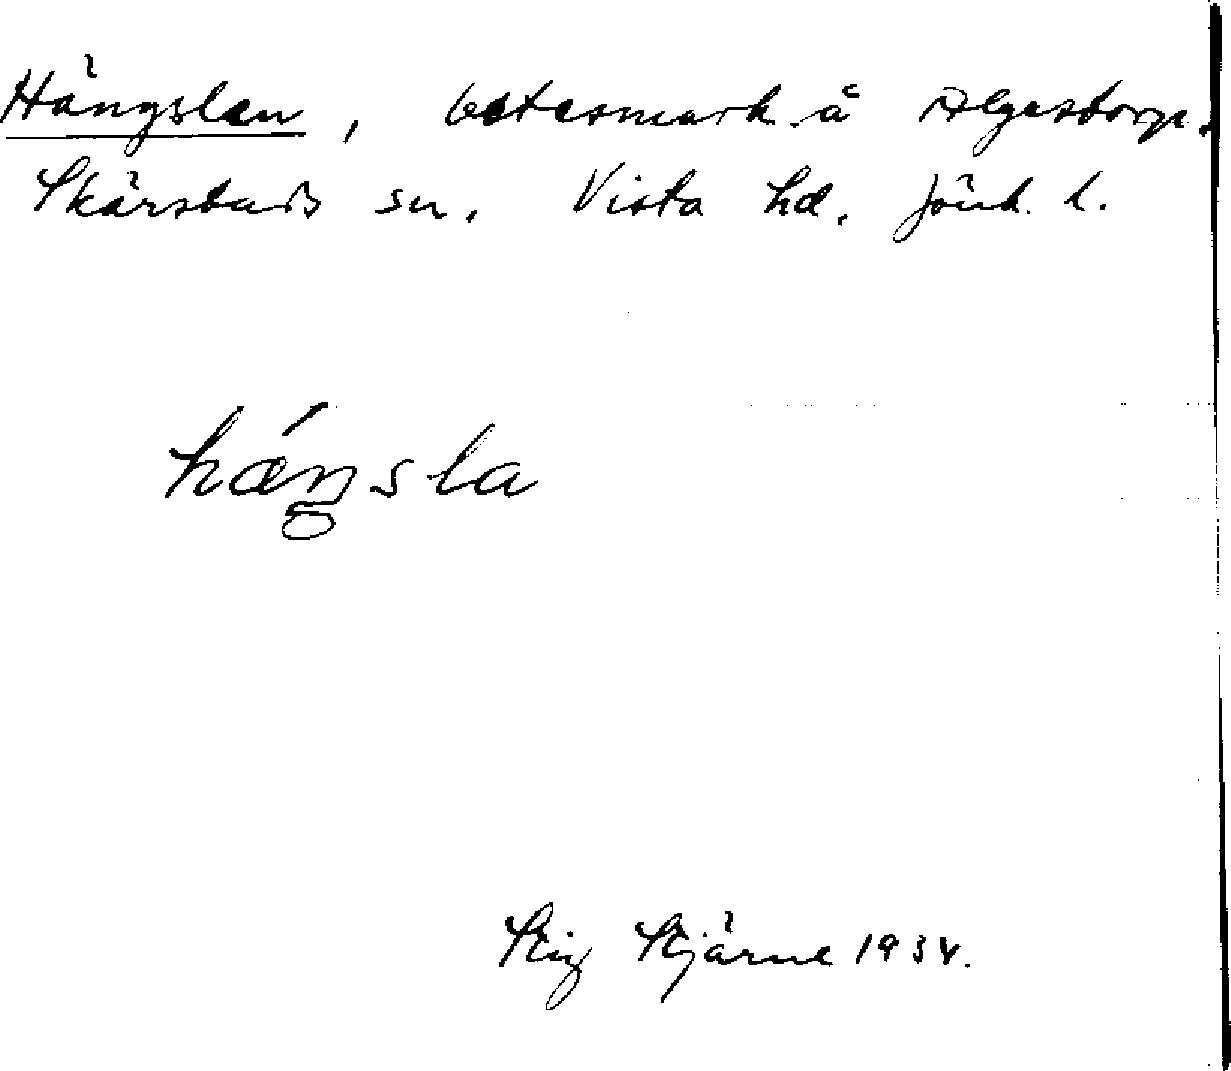 Hängslan, betesmark å Algastorp.
Skärstads sn. Vista hd. Jönk. l.
hǽŋsla
Stig Stjärne 1934.